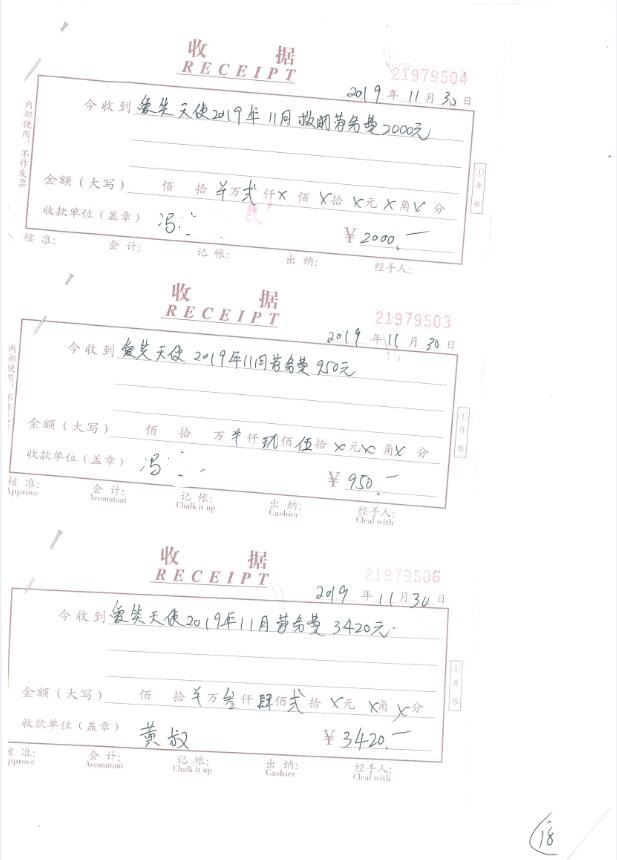 收 据
RECEIPT
21979504
2019 年 11 月 30 日
今收到 爱笑天使2019年11月 劳务费2000元
金额（大写） 佰 拾 ¥万 贰 仟 X 佰 X 拾 X 元 X 角 X 分
收款单位（盖章） 冯
￥ 2000.—
核 准: 会 计: 记 帐: 出 纳: 经手人:
内部使用，不作发票
①存根
收 据
RECEIPT
21979503
2019 年 11 月 30 日
今收到 爱笑天使 2019年11月劳务费 950元
金额（大写） 佰 拾 万 ¥ 仟 玖 佰 伍 拾 X 元 X 角 X 分
收款单位（盖章） 冯
￥ 950.—
核 准: 会 计: 记 帐: 出 纳: 经手人:
Approve Accountant Chalk it up Cashier Cleal with
内部使用，不作
①存根
收 据
RECEIPT
21979506
2019 年 11 月 30 日
今收到 爱笑天使2019年11月劳务费 3420元.
金额（大写） 佰 拾 ¥万 叁 仟 肆 佰 贰 拾 X 元 X 角 X 分
收款单位（盖章） 黄叔
￥ 3420.—
准: 会 计: 记 帐: 出 纳: 经手人:
pprove Accountant Chalk it up Cashier Cleal with
①存根
18